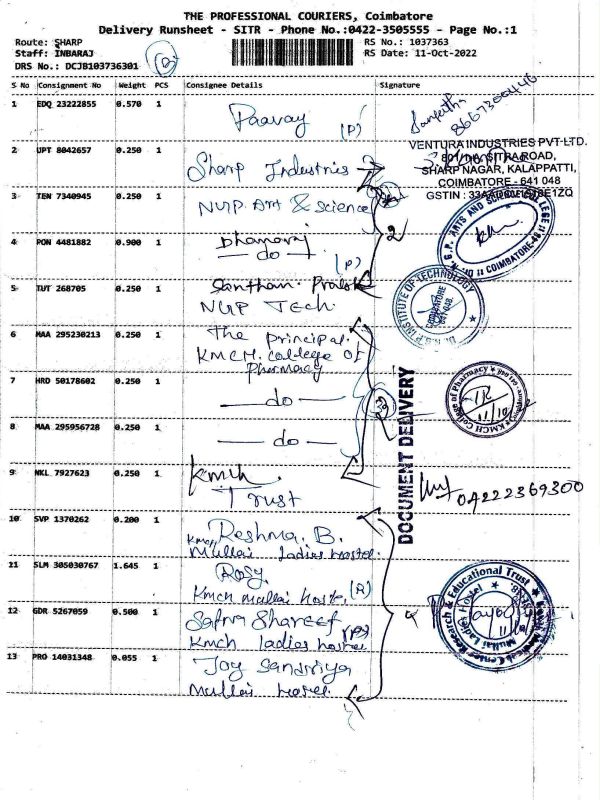 THE PROFESSIONAL COURIERS, Coimbatore
Delivery Runsheet - SITR - Phone No.:0422-3505555 - Page No.:1
Route: SHARP
RS No.: 1037363
Staff: INBARAJ
RS Date: 11-Oct-2022
DRS No.: DCJB103736301
S No Consignment No Weight PCS Consignee Details Signature
1 EDQ 23222855 0.570 1 Paavay (P)
8667300446
2 UPT 8042657 0.250 1 Sharp Industries
VENTURA INDUSTRIES PVT-LTD.
SITRA ROAD,
SHARP NAGAR, KALAPPATTI,
COIMBATORE - 641 048
GSTIN :
3 TEN 7340945 0.250 1 NGP. Art & Science
4 PON 4481882 0.900 1 Dhanaraj
— do — (P)
2
DR. N.G.P. ARTS AND SCIENCE COLLEGE
COIMBATORE-48
5 TUT 268705 0.250 1 Santham
NGP Tech.
DR. N.G.P INSTITUTE OF TECHNOLOGY
COIMBATORE
641 048
6 MAA 295230213 0.250 1 The principal.
KMCH. College of
Pharmacy
7 HRD 50178602 0.250 1 — do —
KMCH College of Pharmacy
11/10
8 MAA 295956728 0.250 1 — do —
DOCUMENT DELIVERY
9 NKL 7927623 0.250 1 Kmch
Trust
04222369300
10 SVP 1370262 0.200 1 Reshma. B.
Kmch Mullai ladies hostel.
11 SLM 305030767 1.645 1 Rosy.
Kmch mullai hostel (R)
12 GDR 5267059 0.500 1 Safna Shareef
Kmch ladies hostel (P)
Kovai Medical Center Research & Educational Trust
Mullai Ladies Hostel
13 PRO 14031348 0.055 1 Joy Sandriya
Mullai hostel